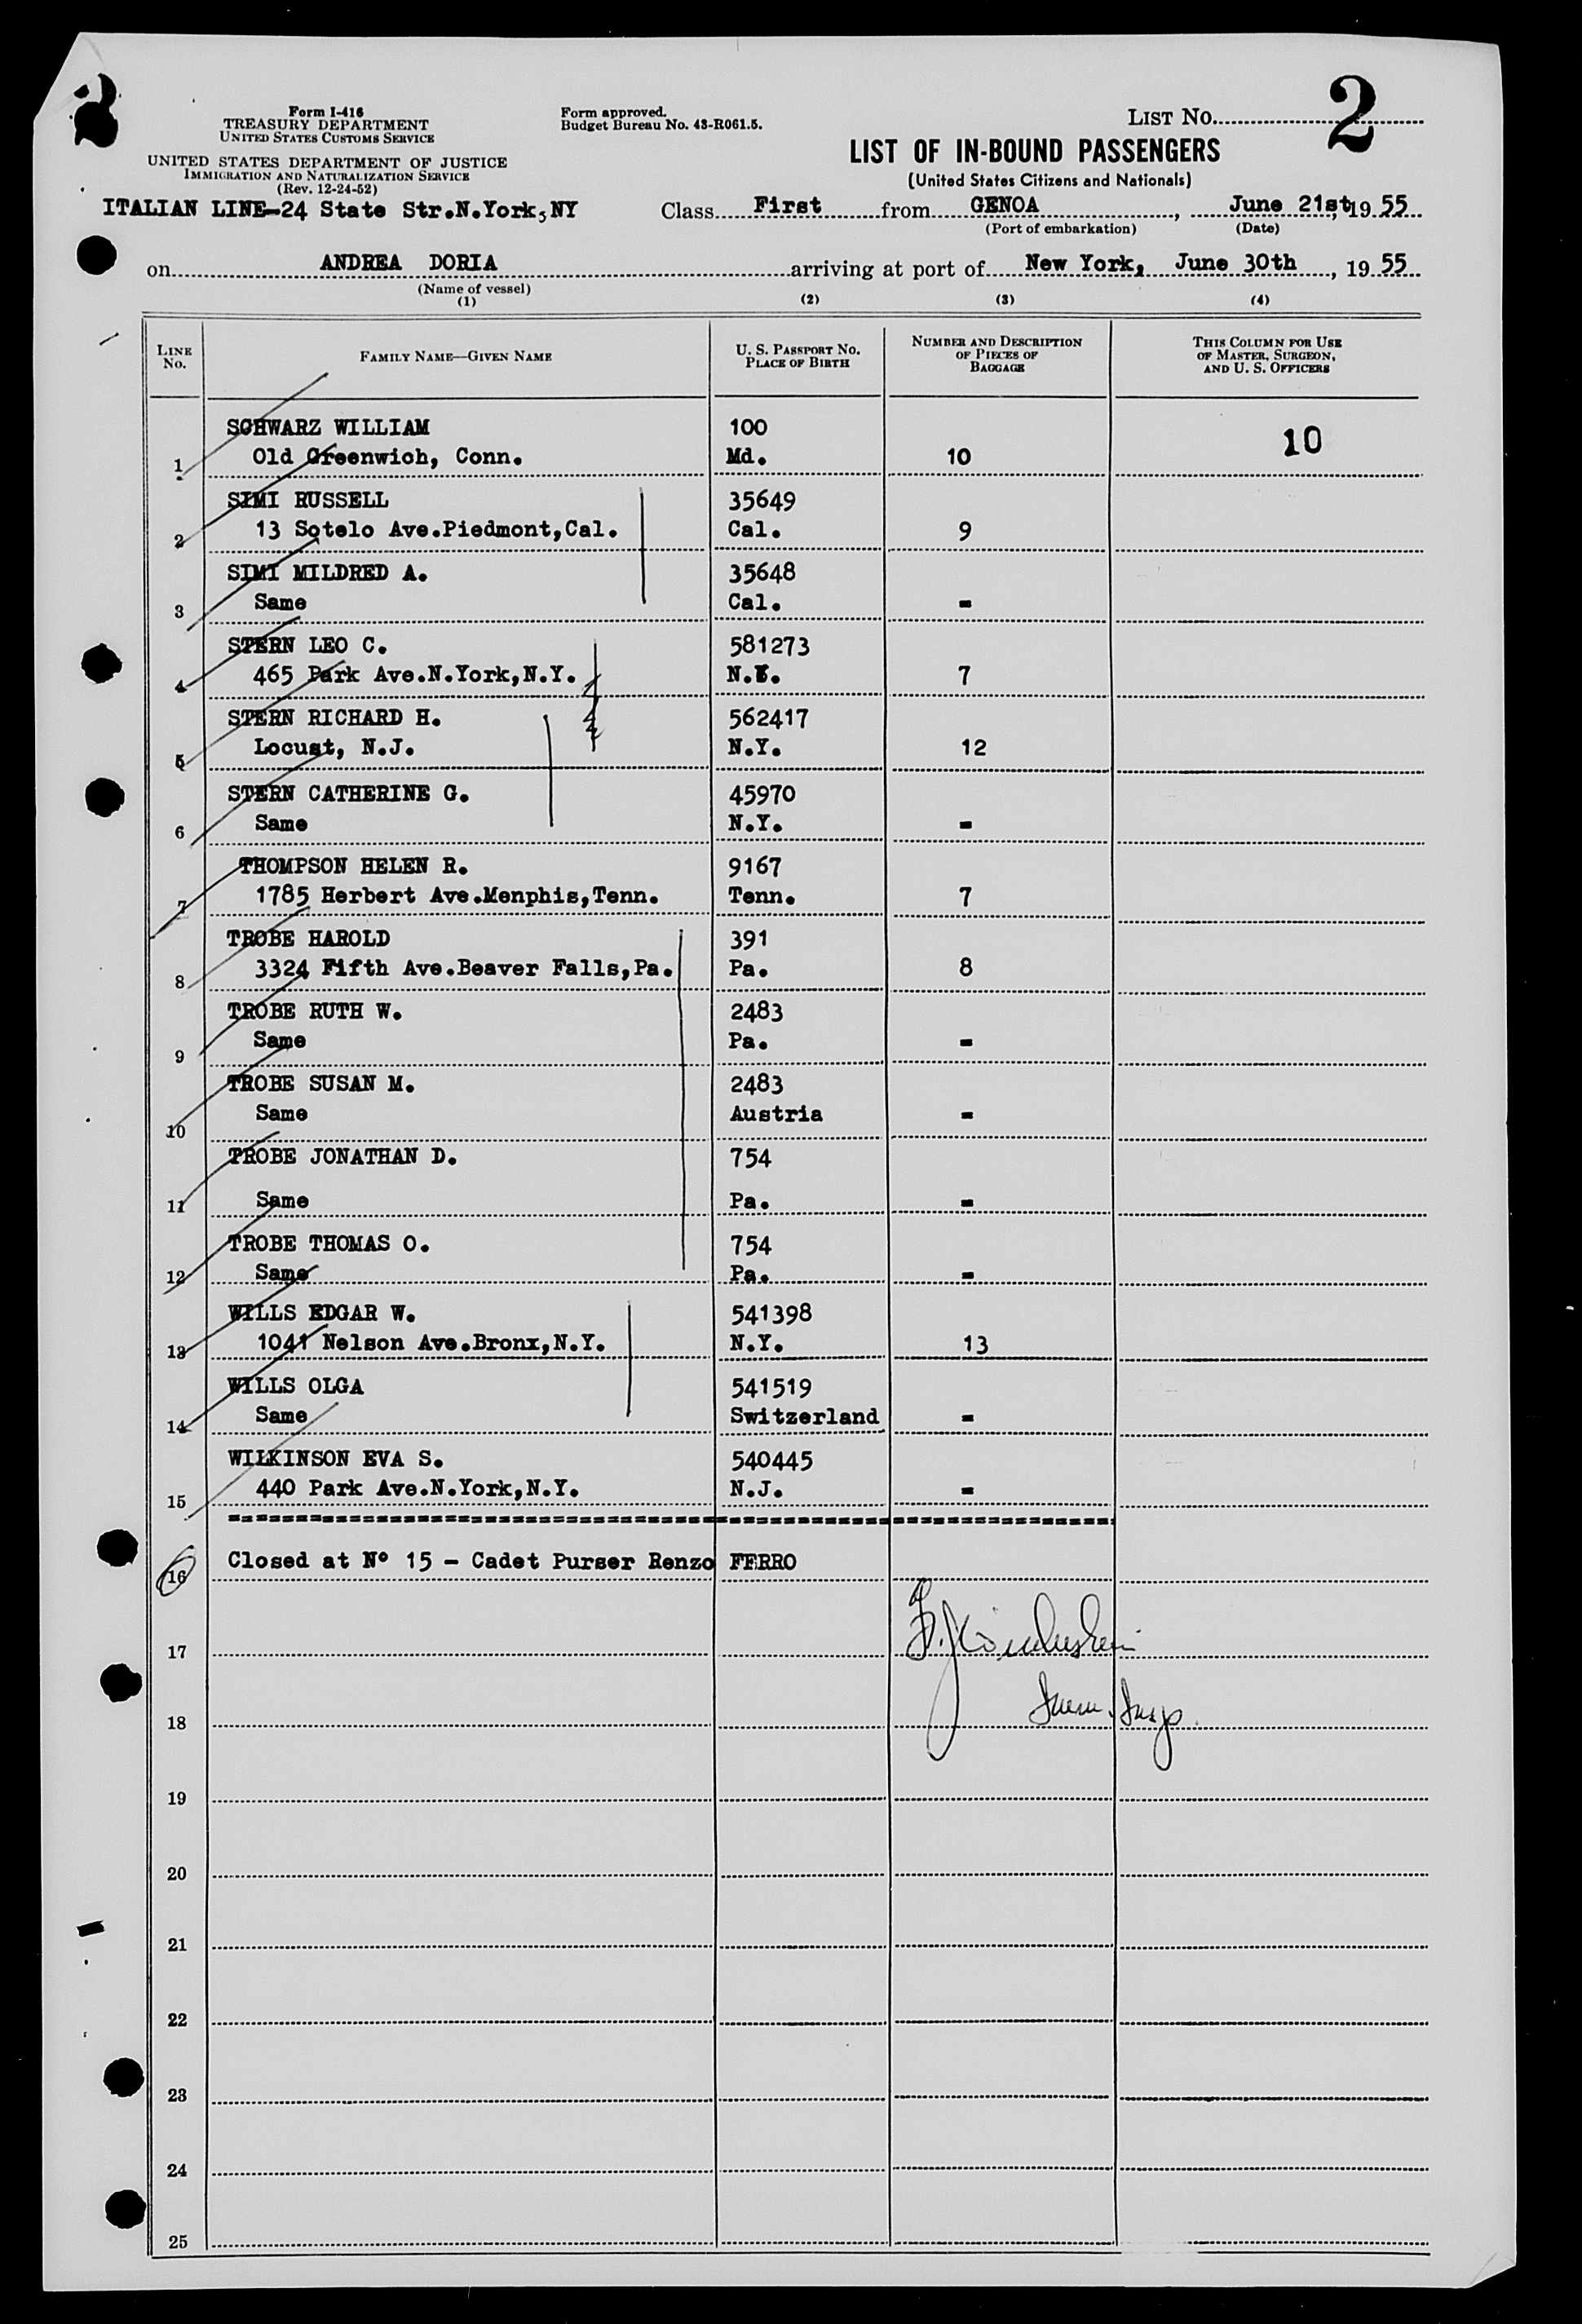 Form I-416
TREASURY DEPARTMENT
UNITED STATES CUSTOMS SERVICE
UNITED STATES DEPARTMENT OF JUSTICE
IMMIGRATION AND NATURALIZATION SERVICE
(Rev. 12-24-52)
Form approved.
Budget Bureau No. 43-R061.5.
LIST NO. 2
LIST OF IN-BOUND PASSENGERS
(United States Citizens and Nationals)
ITALIAN LINE-24 State Str.N.York,NY
Class First from GENOA, June 21st, 19 55
(Port of embarkation) (Date)
on ANDREA DORIA arriving at port of New York, June 30th, 19 55
(Name of vessel)
(1) (2) (3) (4)
LINE NO. FAMILY NAME—GIVEN NAME U. S. PASSPORT NO. PLACE OF BIRTH NUMBER AND DESCRIPTION OF PIECES OF BAGGAGE THIS COLUMN FOR USE OF MASTER, SURGEON, AND U. S. OFFICERS
SCHWARZ WILLIAM 100 10
1 Old Greenwich, Conn. Md. 10
SIMI RUSSELL 35649
2 13 Sotelo Ave.Piedmont,Cal. Cal. 9
SIMI MILDRED A. 35648
3 Same Cal. -
STERN LEO C. 581273
4 465 Park Ave.N.York,N.Y. N.Y. 7
STERN RICHARD H. 562417
5 Locust, N.J. N.Y. 12
STERN CATHERINE G. 45970
6 Same N.Y. -
THOMPSON HELEN R. 9167
7 1785 Herbert Ave.Menphis,Tenn. Tenn. 7
TROBE HAROLD 391
8 3324 Fifth Ave.Beaver Falls,Pa. Pa. 8
TROBE RUTH W. 2483
9 Same Pa. -
TROBE SUSAN M. 2483
10 Same Austria -
TROBE JONATHAN D. 754
11 Same Pa. -
TROBE THOMAS O. 754
12 Same Pa. -
WILLS EDGAR W. 541398
13 1041 Nelson Ave.Bronx,N.Y. N.Y. 13
WILLS OLGA 541519
14 Same Switzerland -
WILKINSON EVA S. 540445
15 440 Park Ave.N.York,N.Y. N.J. -
16 Closed at Nº 15 - Cadet Purser Renzo FERRO
17
18
19
20
21
22
23
24
25